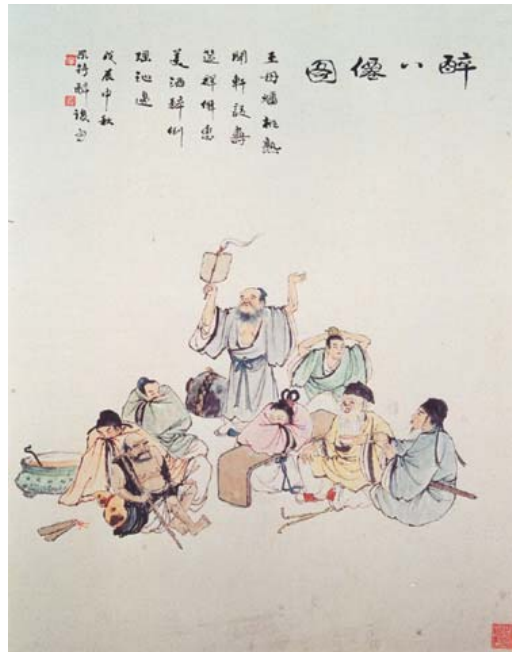 醉八僊圖
王母蟠桃熟
開軒設壽
筵群僊
美酒醉倒
瑶池邊
戊辰中秋